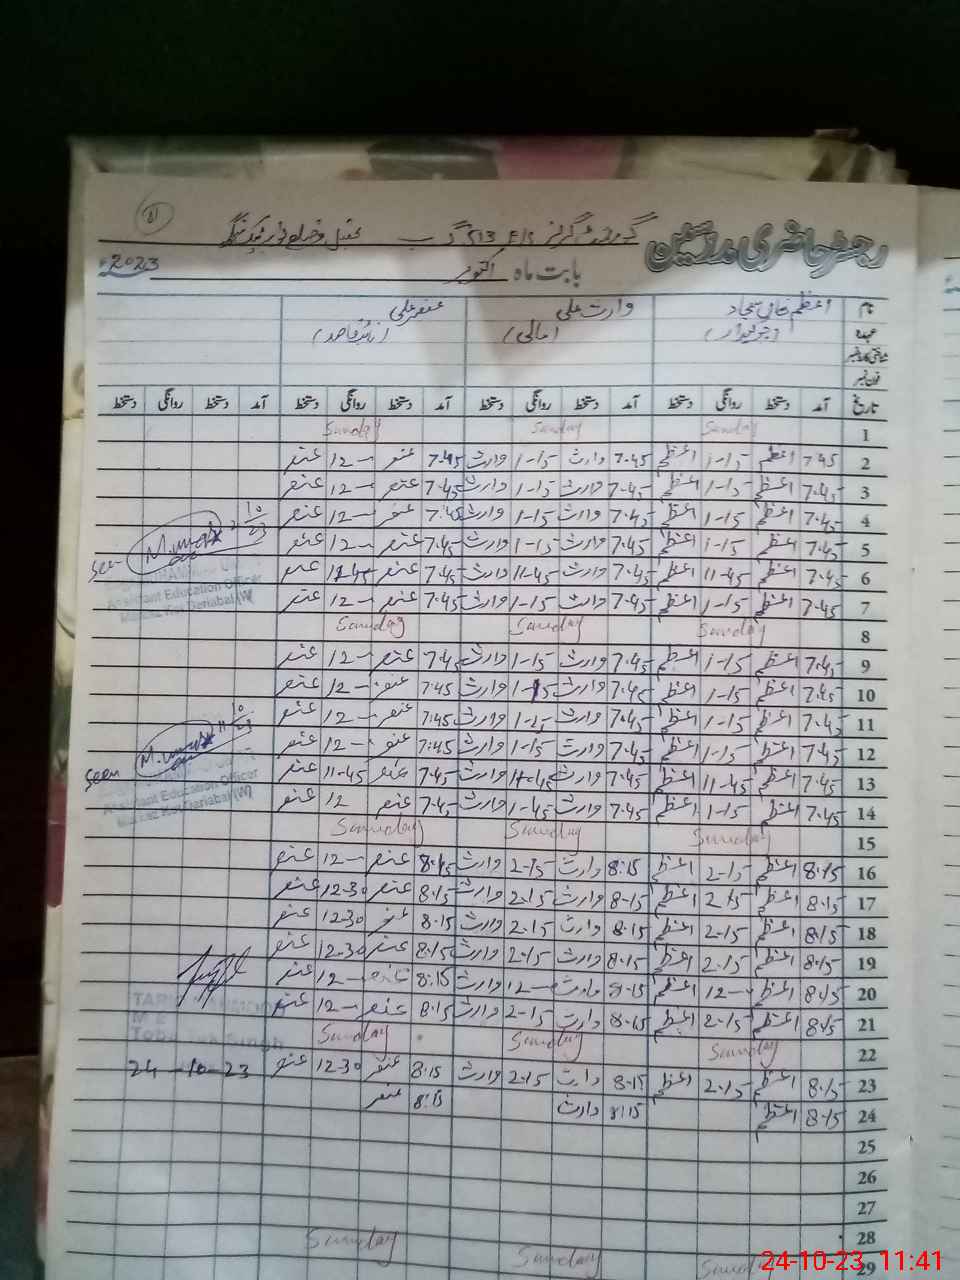 رجسٹر حاضری مدرسین گورنمنٹ گرلز E/S 213 گ ب
بابت ماہ اکتوبر 2023ء
نام اعظم سجاد وارث علی عنصر علی
عہدہ (چوکیدار) (مالی) (نائب قاصد)
شناختی کارڈ نمبر
فون نمبر
تاریخ آمد دستخط روانگی دستخط آمد دستخط روانگی دستخط آمد دستخط روانگی دستخط آمد دستخط روانگی دستخط
1 Sunday Sunday Sunday
2 7.45 اعظم 1-15 اعظم 7.45 وارث 1-15 وارث 7.45 عنصر 12- عنصر
3 7.45 اعظم 1-15 اعظم 7.45 وارث 1-15 وارث 7.45 عنصر 12- عنصر
4 7.45 اعظم 1-15 اعظم 7.45 وارث 1-15 وارث 7.45 عنصر 12- عنصر
5 7.45 اعظم 1-15 اعظم 7.45 وارث 1-15 وارث 7.45 عنصر 12- عنصر
6 7.45 اعظم 11-45 اعظم 7.45 وارث 11-45 وارث 7.45 عنصر عنصر
7 7.45 اعظم 1-15 اعظم 7.45 وارث 1-15 وارث 7.45 عنصر 12- عنصر
seen
Assistant Education Officer
8 Sunday Sunday Sunday
9 7.45 اعظم 1-15 اعظم 7.45 وارث 1-15 وارث 7.45 عنصر 12- عنصر
10 7.45 اعظم 1-15 اعظم 7.45 وارث 1-15 وارث 7.45 عنصر 12- عنصر
11 7.45 اعظم 1-15 اعظم 7.45 وارث 1-15 وارث 7.45 عنصر 12- عنصر
12 7.45 اعظم 1-15 اعظم 7.45 وارث 1-15 وارث 7.45 عنصر 12- عنصر
13 7.45 اعظم 11-45 اعظم 7.45 وارث 11-45 وارث 7.45 عنصر 11-45 عنصر
14 7.45 اعظم 1-15 اعظم 7.45 وارث 1-45 وارث 7.45 عنصر 12 عنصر
seen
Assistant Education Officer
15 Sunday Sunday Sunday
16 8.15 اعظم 2-15 اعظم 8.15 وارث 2-15 وارث 8.15 عنصر 12- عنصر
17 8.15 اعظم 2-15 اعظم 8.15 وارث 2-15 وارث 8.15 عنصر 12-30 عنصر
18 8.15 اعظم 2-15 اعظم 8.15 وارث 2.15 وارث 8.15 عنصر 12-30 عنصر
19 8.15 اعظم 2.15 اعظم 8.15 وارث 2.15 وارث 8.15 عنصر 12-30 عنصر
20 8.45 اعظم 12- اعظم 8.15 وارث 12- وارث 8.15 عنصر 12- عنصر
21 8.15 اعظم 2-15 اعظم 8.15 وارث 2-15 وارث 8.15 عنصر 12- عنصر
22 Sunday Sunday Sunday
23 8.15 اعظم 2.15 اعظم 8.15 وارث 2.15 وارث 8.15 عنصر 12-30 عنصر 24-10-23
24 8.15 اعظم 8.15 وارث 8.15 عنصر
25
26
27
28
29 Sunday Sunday Sunday
24-10-23, 11:41